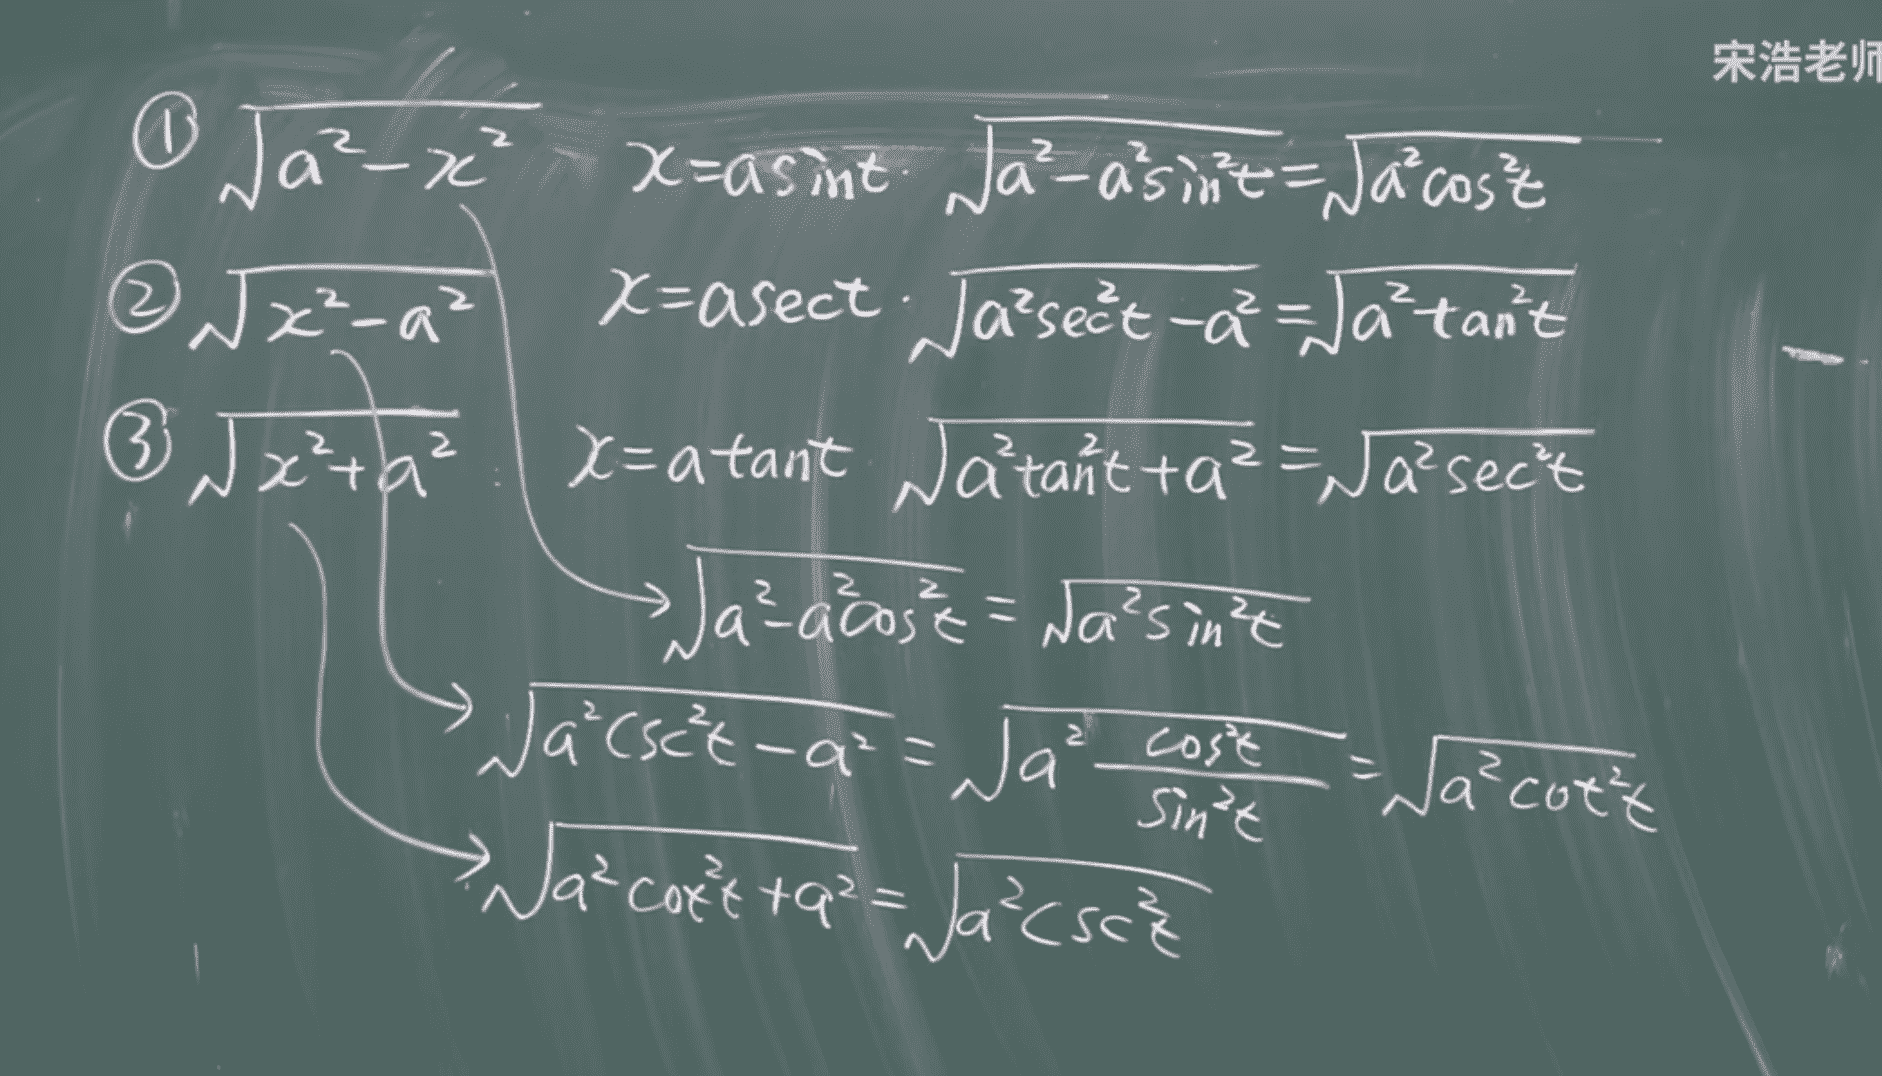 宋浩老师
① √(a²-x²) x=asint. √(a²-a²sin²t)=√(a²cos²t)
② √(x²-a²) x=asect. √(a²sec²t-a²)=√(a²tan²t)
③ √(x²+a²) x=atant √(a²tan²t+a²)=√(a²sec²t)
→ √(a²-a²cos²t) = √(a²sin²t)
→ √(a²csc²t-a²) = √(a² cos²t/sin²t) = √(a²cot²t)
→ √(a²cot²t+a²) = √(a²csc²t)